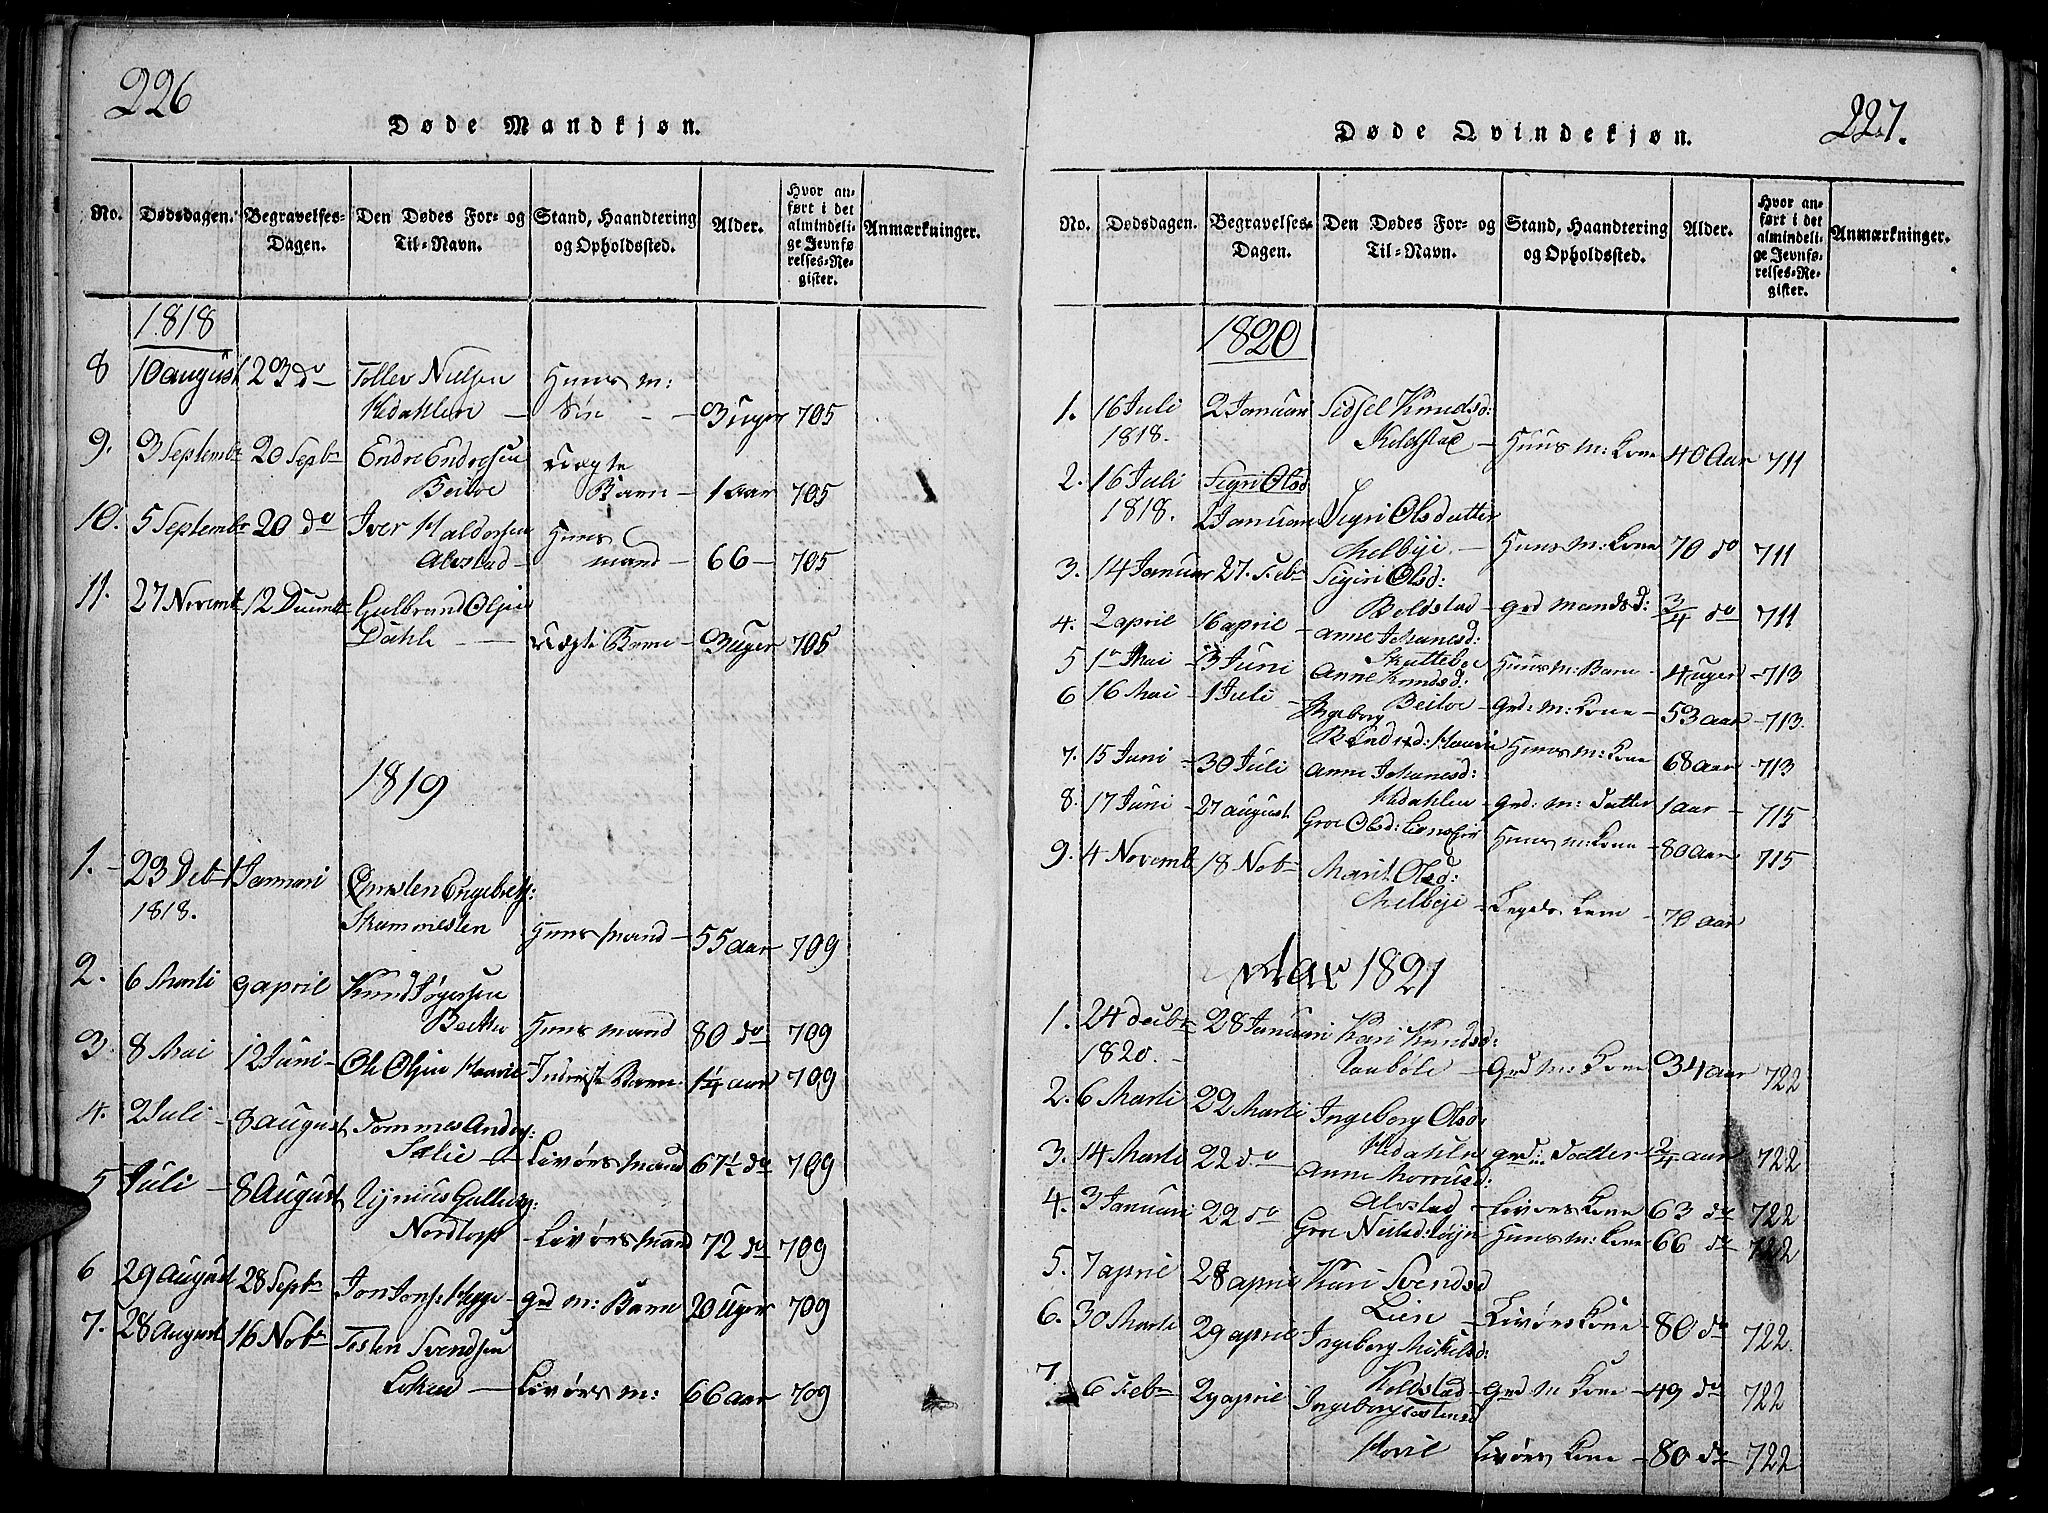 226
Døde Mandkjøn.
No. Dødsdagen. Begravelses-Dagen. Den Dødes For- og Til-Navn. Stand, Haandtering og Opholdssted. Alder. Hvor anført i det almindelige Jevnførelses-Register. Anmærkninger.
1818
8 10 august 23 do Tollev Nielsen Huus m:
Hedahlen Søn 3 Uger 705
9. 3 Septembr 20 Septbr Endre Endresen Uægte
Beitoe Barn 1 Aar 705
10. 5 Septembr 20 do Iver Haldorsen Huus
Alvstad mand 66 705
11. 27 Novembr 12 Decembr Gulbrand Olsen
Dahle Uægte Barn 3 Uger 705
1819
1. 23 Debr 1 Januari Engebretss:
1818. Skammesten Huusmand 55 aar 709
2. 6 Marti 9 april Knud
Huusmand 80 do 709
3. 8 Mai 12 Juni Ole Olsen Haavie Barn 1¼ aar 709
4. 2 Juli 8 august Tommes Anders:
Livørsmand 67½ do 709
5 Juli 8 August
Nordtorp Livørsmand 72 do 709
6 29 August 28 Septbr Jon Jons: Hegge grd m: Barn 20 Uger 709
7. 28 August 16 Nobr Svendsen
Løken Livørs m: 66 aar 709
227.
Døde Qvindekjøn.
No. Dødsdagen. Begravelses-Dagen. Den Dødes For- og Til-Navn. Stand, Haandtering og Opholdssted. Alder. Hvor anført i det almindelige Jevnførelses-Register. Anmærkninger.
1820
1. 16 Juli 2 Januari Sidsel Knudsd:
1818. Koldstad Huus m: Kone 40 Aar 711
2. 16 Juli Sigri Olsd
1818. 2 Januari Sigri Olsdatter
Melbye Huus m: Kone 70 do 711
3. 14 Januar 27. Febr Sigri Olsd:
Boldstad grd mands d: ¾ do 711
4. 2 april 16 april Anne Johanesd:
Skatteboe Huus m: Barn 4 uger 713
5 1 Mai 3 Juni Anne Knudsd:
Beitoe grd: m: Kone 53 aar 713.
6 16 Mai 1 Juli Ingeborg
Haavie Huus m: Kone 68 aar 713
7. 15 Juni 30 Juli Anne Johanesd:
Hedahlen grd: m: Datter 1 aar 715
8. 17 Juni 27 august Groe Olsd: Huus m: Kone 80 aar 715
9. 4 Novemb 18 Nobr Marit Olsd:
Melbye Lægds Lem 70 aar
Aar 1821
1. 24 decbr 28 Januari Kari Knudsd:
1820. grd m: Kone 34 aar 722
2. 6 Marti 22 Marti Ingeborg Olsd:
Hedahlen grd m Datter ¾ aar 722
3. 14 Marti 22 do Anne
Alvstad Livørs Kone 63 do 722
4. 3 Januari 22 do Groe Huus m: Kone 66 do 722
5. 7 april 28 april Kari Svendsd
Lien Livørs Kone 80 do 722.
6. 30 Marti 29 april Ingeborg Mikelsd:
Koldstad grd m Kone 49 do 722
7. 6 Febr 29 april Ingeborg
Livørs Kone 80 do 722.